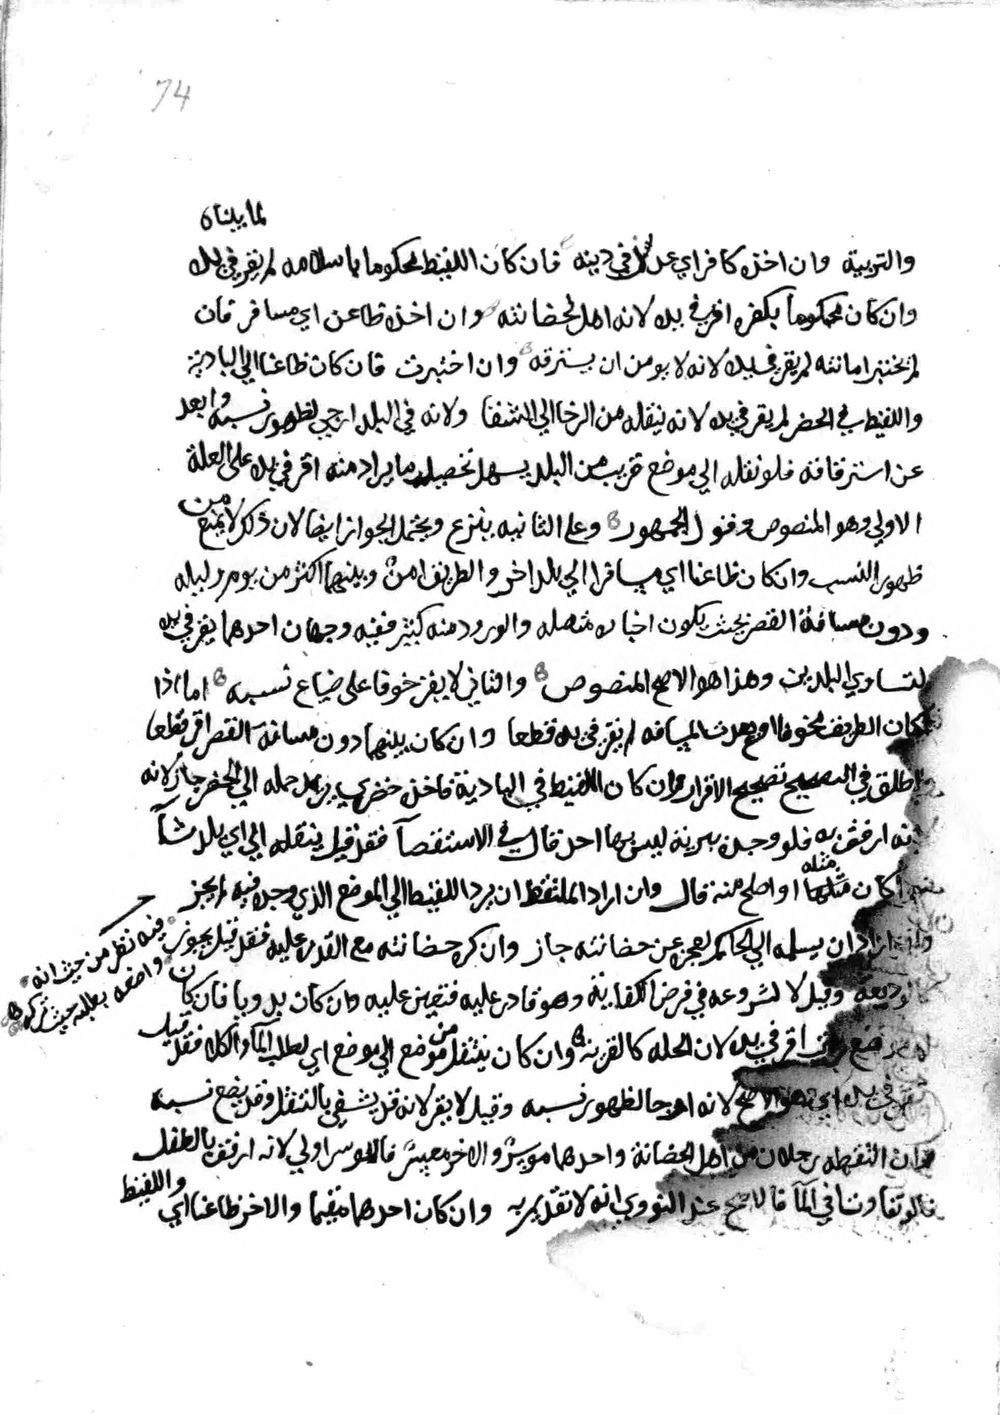 74
لما بيناه
والتربية وان اخذه كافر اي عدل في دينه فان كان اللقيط محكوما باسلامه لم يقر في يده
وان كان محكوما بكفره اقر في يده لانه اهل لحضانته وان اخذه ظاعن اي مسافر فان
لم تختبر امانته لم يقر في يده لانه لا يومن ان يسترقه وان اختبرت فان كان ظاعنا الي البادية
واللقيط في الحضر لم يقر في يده لانه ينقله من الرخا الي الشقا ولانه في البلد ارجي لظهور نسبه وابعد
عن استرقاقه فلو نقله الي موضع قريب من البلد يسهل تحصيل ما يراد منه اقر في يده علي العلة
الاولي وهو المنصوص وقول الجمهور وعلي الثانيه ينتزع ويحتمل الجواز ايضا لان ذلك لا يمنع من
ظهور النسب وان كان ظاعنا اي مسافرا الي بلد اخر والطريق امن وبينهما اكثر من يوم وليله
ودون مسافة القصر بحيث يكون اخباره متصله والورود منه كثير ففيه وجهان احدهما يقر في يده
لتساوي البلدين وهذا هو الاصح المنصوص والثاني لا يقر خوفا علي ضياع نسبه اما اذا
كان الطريق مخوفا او بعدت المسافه لم يقر في يده قطعا وان كان بينهما دون مسافة القصر اقر قطعا
واطلق في التصحيح تصحيح الاقرار وان كان اللقيط في البادية فاخذه حضري يريد حمله الي الحضر جاز لانه
ارفق به فلو وجده ببرية ليس بها احد قال في الاستقصآ فقد قيل ينقله الي اي بلد شآ
كان مثلها مثله او اصلح منه قال وان اراد الملتقط ان يرد اللقيط الي الموضع الذي وجده فيه لم يجز
اراد ان يسلمه الي الحاكم لعجزه عن حضانته جاز وان كره حضانته مع القدره عليه فقد قيل يجوز
فيه نظر من حيث انه
كالوديعة وقيل لا لشروعه في فرض الكفاية وهو قادر عليه فتعين عليه وان كان بدويا فان كان
واضعه بطلبه حيث
اقر في يده لان الحله كالقريه وان كان ينتقل من موضع الي موضع اي لطلب المآ والكلا فقد قيل
يقر في يده اي وهو الاصح لانه ارجا لظهور نسبه وقيل لا يقر لانه قد يشقي بالتنقل وقد يضيع نسبه
وان التقطه رجلان من اهل الحضانة واحدهما موسر والاخر معسر فالموسر اولي لانه ارفق بالطفل
فلو تفاوتا في المآ فالاصح عند النووي انه لا تقديم به وان كان احدهما مقيما والاخر ظاعنا اي واللقيط